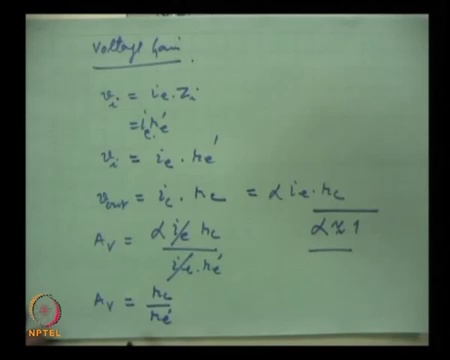 Voltage Gain
v_i = i_e . z_i
= i_e r_e'
v_i = i_e . r_e'
v_out = i_c . r_c = α i_e . r_c
A_v = α i_e r_c / i_e . r_e'   α ≈ 1
A_v = r_c / r_e'
NPTEL